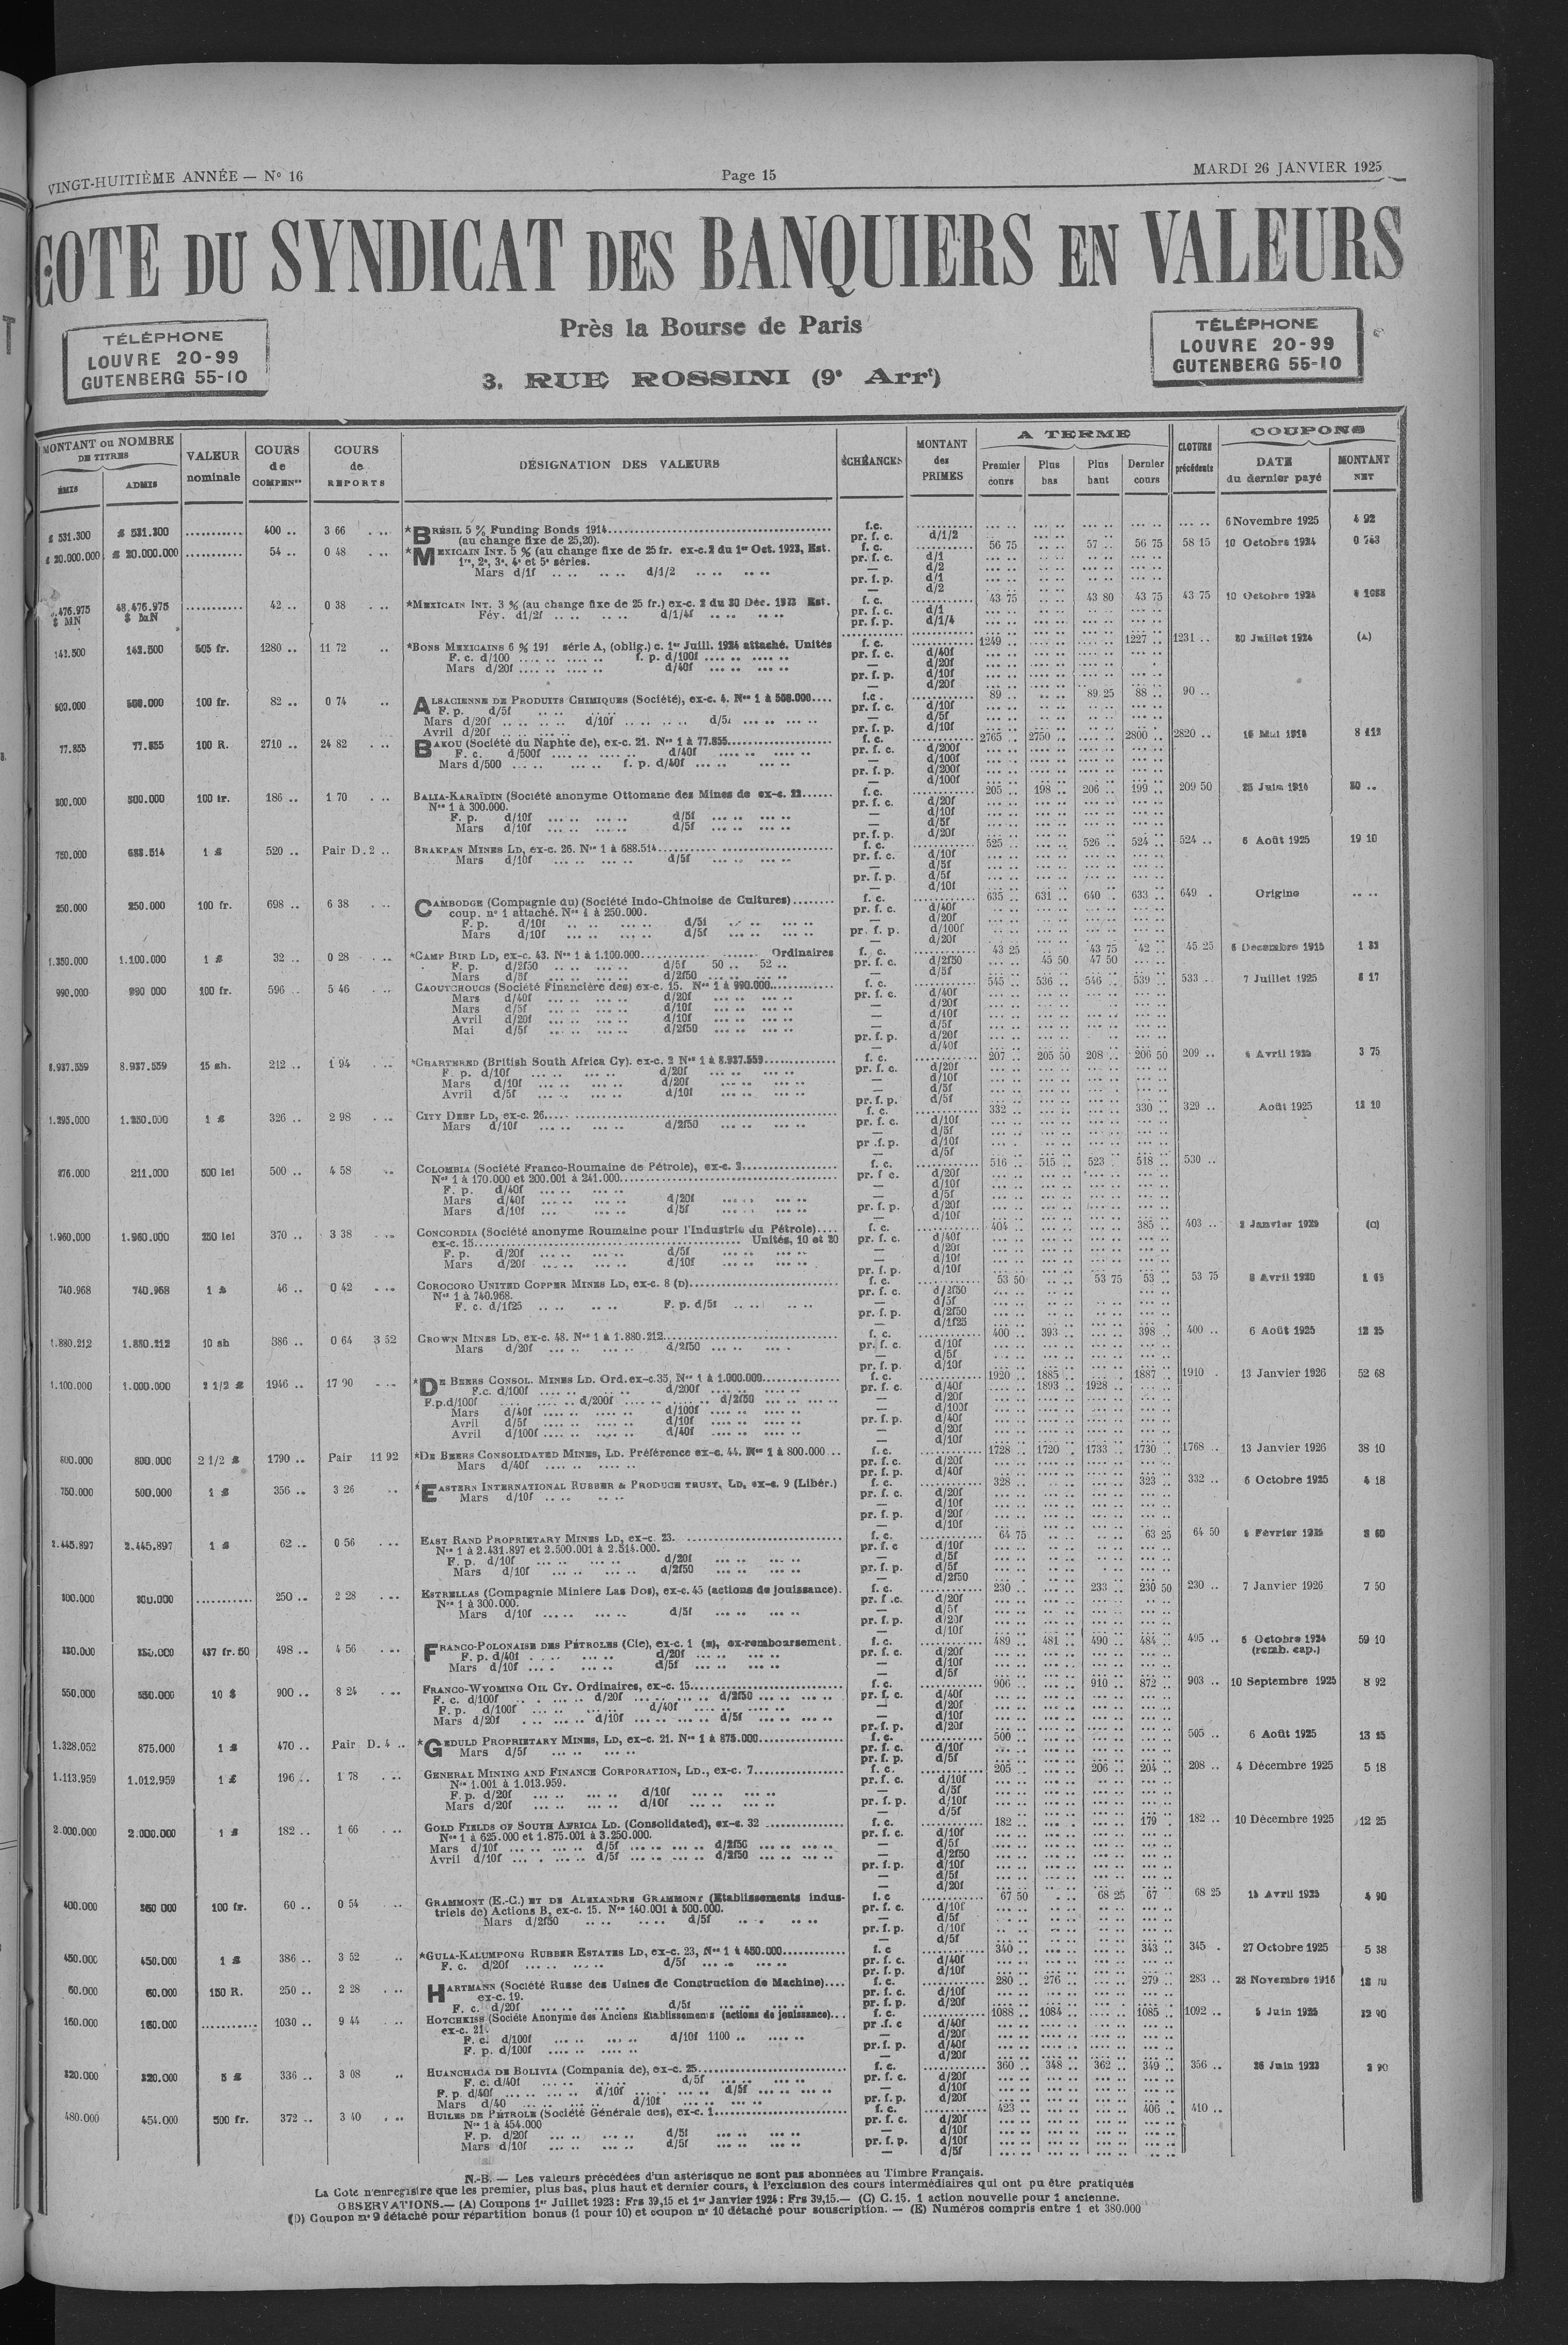 VINGT-HUITIÈME ANNÉE — N° 16
Page 15
MARDI 26 JANVIER 1925
COTE DU SYNDICAT DES BANQUIERS EN VALEURS
TÉLÉPHONE
LOUVRE 20-99
GUTENBERG 55-10
Près la Bourse de Paris
3, RUE ROSSINI (9e Arrt)
TÉLÉPHONE
LOUVRE 20-99
GUTENBERG 55-10
MONTANT ou NOMBRE DE TITRES
ÉMIS
ADMIS
VALEUR nominale
COURS de COMPENon
COURS de REPORTS
DÉSIGNATION DES VALEURS
ÉCHÉANCES
MONTANT des PRIMES
A TERME
Premier cours
Plus bas
Plus haut
Dernier cours
CLOTURE précédente
COUPONS
DATE du dernier payé
MONTANT NET
£ 531.300 £ 531.300 ........... 400 .. 3 66 *BRÉSIL 5 % Funding Bonds 1914 f.c. 6 Novembre 1925 4 92
(au change fixe de 25,20). pr. f. c. d/1/2
£ 20.000.000 £ 20.000.000 ........... 54 .. 0 48 *MEXICAIN INT. 5 % (au change fixe de 25 fr. ex-c.2 du 1er Oct. 1923, Est. f. c. 56 75 57 .. 56 75 58 15 10 Octobre 1924 0 743
1re, 2e, 3e, 4e et 5e séries. pr. f. c. d/1
Mars d/1f d/1/2 d/2
pr. f. p. d/1
— d/2
48.476.975 $ MN ........... 42 .. 0 38 *MEXICAIN INT. 3 % (au change fixe de 25 fr.) ex-c. 2 du 30 Déc. 1923 Est. f. c. 43 75 43 80 43 75 43 75 10 Octobre 1924
Fév. d1/2f d/1/4f pr. f. c. d/1
pr. f. p. d/1/4
142.500 142.500 505 fr. 1280 .. 11 72 *BONS MEXICAINS 6 % 191 série A, (oblig.) c. 1er Juill. 1924 attaché. Unités f. c. 1249 .. 1227 .. 1231 .. 30 Juillet 1924 (A)
F. c. d/100 f. p. d/100f pr. f. c. d/40f
Mars d/20f d/40f — d/20f
pr. f. p. d/10f
— d/20f
500.000 500.000 100 fr. 82 .. 0 74 ALSACIENNE DE PRODUITS CHIMIQUES (Société), ex-c. 4. Nos 1 à 500.000 f.c. 89 .. 89 25 88 .. 90 ..
F. p. d/5f pr. f. c. d/10f
Mars d/20f d/10f d/5f — d/5f
Avril d/20f pr. f. p. d/10f
77.855 77.855 100 R. 2710 .. 24 82 BAKOU (Société du Naphte de), ex-c. 21. Nos 1 à 77.855 f. c. 2765 .. 2750 .. 2800 .. 2820 ..
F. c. d/500f d/40f pr. f. c. d/200f
Mars d/500 f. p. d/40f — d/100f
pr. f. p. d/200f
— d/100f
300.000 300.000 100 fr. 186 .. 1 70 BALIA-KARAÏDIN (Société anonyme Ottomane des Mines de ex-c. 22 f. c. 205 .. 198 .. 206 .. 199 .. 209 50 25 Juin 1914
Nos 1 à 300.000. pr. f. c. d/20f
F. p. d/10f d/5f — d/10f
Mars d/10f d/5f — d/5f
pr. f. p. d/20f
750.000 688.514 1 £ 520 .. Pair D. 2 .. BRAKPAN MINES LD, ex-c. 26. Nos 1 à 688.514 f. c. 525 .. 526 .. 524 .. 524 .. 6 Août 1925 19 10
Mars d/10f d/5f pr. f. c. d/10f
— d/5f
pr. f. p. d/5f
— d/10f
250.000 250.000 100 fr. 698 .. 6 38 CAMBODGE (Compagnie du) (Société Indo-Chinoise de Cultures) f. c. 635 .. 631 .. 640 .. 633 .. 649 . Origine
coup. n° 1 attaché. Nos 1 à 250.000. pr. f. c. d/40f
F. p. d/10f d/5f — d/20f
Mars d/10f d/5f pr. f. p. d/100f
— d/20f
1.350.000 1.100.000 1 £ 32 .. 0 28 *CAMP BIRD LD, ex-c. 43. Nos 1 à 1.100.000 Ordinaires f. c. 43 25 43 75 42 .. 45 25 1 33
F. p. d/2f50 d/5f 50 .. 52 .. pr. f. c. d/2f50 45 50 47 50
Mars d/5f d/2f50 — d/5f
990.000 990 000 100 fr. 596 .. 5 46 CAOUTCHOUCS (Société Financière des) ex-c. 15. Nos 1 à 990.000 f. c. 545 .. 536 .. 546 .. 539 .. 533 .. 7 Juillet 1925 8 17
Mars d/40f d/20f pr. f. c. d/40f
Mars d/5f d/10f — d/20f
Avril d/20f d/10f — d/10f
Mai d/5f d/2f50 — d/5f
pr. f. p. d/20f
— d/40f
8.937.559 8.937.559 15 sh. 212 .. 1 94 *CHARTERED (British South Africa Cy). ex-c. 2 Nos 1 à 8.937.559 f. c. 207 .. 205 50 208 .. 206 50 209 .. 3 75
F. p. d/10f d/20f pr. f. c. d/20f
Mars d/10f d/20f — d/10f
Avril d/5f d/10f — d/5f
pr. f. p. d/5f
1.295.000 1.250.000 1 £ 326 .. 2 98 CITY DEEP LD, ex-c. 26 f. c. 332 .. 330 .. 329 .. Août 1925 12 10
Mars d/10f d/2f50 pr. f. c. d/10f
— d/5f
pr .f. p. d/10f
— d/5f
276.000 211.000 500 lei 500 .. 4 58 COLOMBIA (Société Franco-Roumaine de Pétrole), ex-c. 3 f. c. 516 .. 515 .. 523 . 518 .. 530 ..
Nos 1 à 170.000 et 200.001 à 241.000 pr. f c. d/20f
F. p. d/40f — d/10f
Mars d/40f d/20f — d/5f
Mars d/10f d/5f pr. f. p. d/20f
— d/10f
1.960.000 1.960.000 250 lei 370 .. 3 38 CONCORDIA (Société anonyme Roumaine pour l'Industrie du Pétrole) f. c. 404 .. 385 .. 403 .. (C)
ex-c. 15 Unités, 10 et 20 pr. f. c. d/40f
F. p. d/20f d/5f — d/20f
Mars d/20f d/10f — d/10f
pr. f. p. d/10f
740.968 740.968 1 £ 46 .. 0 42 COROCORO UNITED COPPER MINES LD, ex-c. 8 (D) f. c. 53 50 53 75 53 .. 53 75 8 Avril 1920
Nos 1 à 740.968. pr. f. c. d/2f50
F. c. d/1f25 F. p. d/5f — d/5f
pr. f. p. d/2f50
— d/1f25
1.880.212 1.880.212 10 sh 386 .. 0 64 3 52 CROWN MINES LD, ex-c. 48. Nos 1 à 1.880.212 f. c. 400 .. 393 .. 398 .. 400 .. 6 Août 1925 12 25
Mars d/20f d/2f50 pr. f. c. d/10f
— d/5f
pr. f. p. d/10f
1.100.000 1.000.000 2 1/2 £ 1946 .. 17 90 *DE BEERS CONSOL. MINES LD. Ord. ex-c.35, Nos 1 à 1.000.000 f. c. 1920 .. 1885 .. 1887 .. 1910 . 13 Janvier 1926 52 68
F.c. d/100f d/200f pr. f. c. d/40f 1893 .. 1928 ..
F.p.d/100f d/200f d/2f50 — d/20f
Mars d/40f d/100f — d/100f
Avril d/5f d/10f pr. f. p. d/40f
Avril d/100f d/40f — d/20f
— d/10f
800.000 800.000 2 1/2 £ 1790 .. Pair 11 92 *DE BEERS CONSOLIDATED MINES, LD. Préférence ex-c. 44. Nos 1 à 800.000 f. c. 1728 .. 1720 .. 1733 .. 1730 .. 1768 .. 13 Janvier 1926 38 10
Mars d/40f pr. f. c. d/20f
pr. f. p. d/40f
750.000 500.000 1 £ 356 .. 3 26 *EASTERN INTERNATIONAL RUBBER & PRODUCE TRUST, LD, ex-c. 9 (Libér.) f. c. 328 .. 323 .. 332 .. 6 Octobre 1925 4 18
Mars d/10f pr. f. c. d/20f
— d/10f
pr. f. p. d/20f
— d/10f
2.445.897 2.445.897 1 £ 62 .. 0 56 EAST RAND PROPRIETARY MINES LD, ex-c. 23. f. c. 64 75 63 25 64 50
Nos 1 à 2.431.897 et 2.500.001 à 2.514.000. pr. f. c d/10f
F. p. d/10f d/20f — d/5f
Mars d/10f d/2f50 pr. f. p. d/5f
— d/2f50
300.000 300.000 ........... 250 .. 2 28 ESTRELLAS (Compagnie Miniere Las Dos), ex-c. 45 (actions de jouissance). f. c. 230 .. 233 .. 230 50 230 .. 7 Janvier 1926 7 50
Nos 1 à 300.000. pr. f .c. d/20f
Mars d/10f d/5f — d/5f
pr. f. p. d/20f
— d/10f
350.000 437 fr. 50 498 .. 4 56 FRANCO-POLONAISE DES PÉTROLES (Cie), ex-c. 1 (E), ex-remboursement. f. c. 489 .. 481 .. 490 .. 484 .. 495 .. 6 Octobre 1924 (remb. cap.) 59 10
F. p. d/40f d/20f pr. f. c. d/20f
Mars d/10f d/5f — d/10f
— d/5f
550.000 550.000 10 $ 900 .. 8 24 FRANCO-WYOMING OIL CY. Ordinaires, ex-c. 15 f. c. 906 .. 910 .. 872 .. 903 .. 10 Septembre 1925 8 92
F. c. d/100f d/20f d/2f50 pr. f. c. d/40f
F. p. d/100f d/40f — d/20f
Mars d/20f d/10f d/5f — d/10f
pr. f. p. d/20f
1.328.052 875.000 1 £ 470 .. Pair D. 4 .. *GEDULD PROPRIETARY MINES, LD, ex-c. 21. Nos 1 à 875.000 f. c. 500 .. 505 .. 6 Août 1925 13 15
Mars d/5f pr. f. c. d/10f
pr. f. p. d/5f
1.113.959 1.012.959 1 £ 196 .. 1 78 GENERAL MINING AND FINANCE CORPORATION, LD., ex-c. 7 f. c. 205 .. 206 .. 204 .. 208 .. 4 Décembre 1925 5 18
Nos 1.001 à 1.013.959. pr. f. c. d/10f
F. p. d/20f d/10f — d/5f
Mars d/20f d/10f pr. f. p. d/10f
— d/5f
2.000.000 2.000.000 1 £ 182 .. 1 66 GOLD FIELDS OF SOUTH AFRICA LD. (Consolidated), ex-c. 32 f. c. 182 .. 179 . 182 .. 10 Décembre 1925 12 25
Nos 1 à 625.000 et 1.875.001 à 3.250.000. pr. f. c. d/10f
Mars d/10f d/5f d/2f50 — d/5f
Avril d/10f d/5f d/2f50 — d/2f50
pr. f. p. d/10f
— d/5f
— d/20f
400.000 360 000 100 fr. 60 .. 0 54 GRAMMONT (E.-C.) ET DE ALEXANDRE GRAMMONT (Etablissements indus- f. c 67 50 68 25 67 .. 68 25 15 Avril 1925 4 90
triels de) Actions B, ex-c. 15. Nos 140.001 à 500.000. pr. f. c. d/10f
Mars d/2f50 d/5f — d/5f
pr. f. p. d/10f
— d/5f
450.000 450.000 1 £ 386 .. 3 52 *GULA-KALUMPONG RUBBER ESTATES LD, ex-c. 23, Nos 1 à 450.000 f. c 340 .. 343 .. 345 . 27 Octobre 1925 5 38
F. c. d/20f d/5f pr. f. c. d/40f
pr. f. p. d/10f
60.000 60.000 150 R. 250 .. 2 28 HARTMANN (Société Russe des Usines de Construction de Machine) f. c. 280 .. 276 .. 279 .. 283 .. 28 Novembre 1916
ex-c. 19. pr. f. c. d/10f
F. c. d/20f d/5f pr. f. p. d/20f
160.000 160.000 ........... 1030 .. 9 44 HOTCHKISS (Société Anonyme des Anciens Etablissements (actions de jouissance) f. c. 1088 .. 1084 .. 1085 .. 1092 .. 5 Juin 1925
ex-c. 21. pr. f. c d/40f
F. c. d/100f d/10f 1100 .. — d/20f
F. p. d/100f pr. f. p. d/40f
— d/20f
320.000 320.000 5 £ 336 .. 3 08 HUANCHACA DE BOLIVIA (Compania de), ex-c. 25 f. c. 360 .. 348 .. 362 .. 349 .. 356 .. 26 Juin 1923
F. c. d/40f d/5f pr. f. c. d/20f
F. p. d/40f d/10f d/5f — d/10f
Mars d/40 d/10f pr. f. p. d/20f
480.000 454.000 500 fr. 372 .. 3 40 HUILES DE PÉTROLE (Société Générale des), ex-c. 1 f. c. 423 .. 406 .. 410 ..
Nos 1 à 454.000 pr. f. c. d/20f
F. p. d/20f d/5f — d/10f
Mars d/10f d/5f pr. f. p. d/10f
— d/5f
N.-B. — Les valeurs précédées d'un astérisque ne sont pas abonnées au Timbre Français.
La Cote n'enregistre que les premier, plus bas, plus haut et dernier cours, à l'exclusion des cours intermédiaires qui ont pu être pratiqués
OBSERVATIONS.— (A) Coupons 1er Juillet 1923 : Frs 39,15 et 1er Janvier 1924 : Frs 39,15.— (C) C. 15. 1 action nouvelle pour 1 ancienne.
(D) Coupon n° 9 détaché pour répartition bonus (1 pour 10) et coupon n° 10 détaché pour souscription. — (E) Numéros compris entre 1 et 380.000